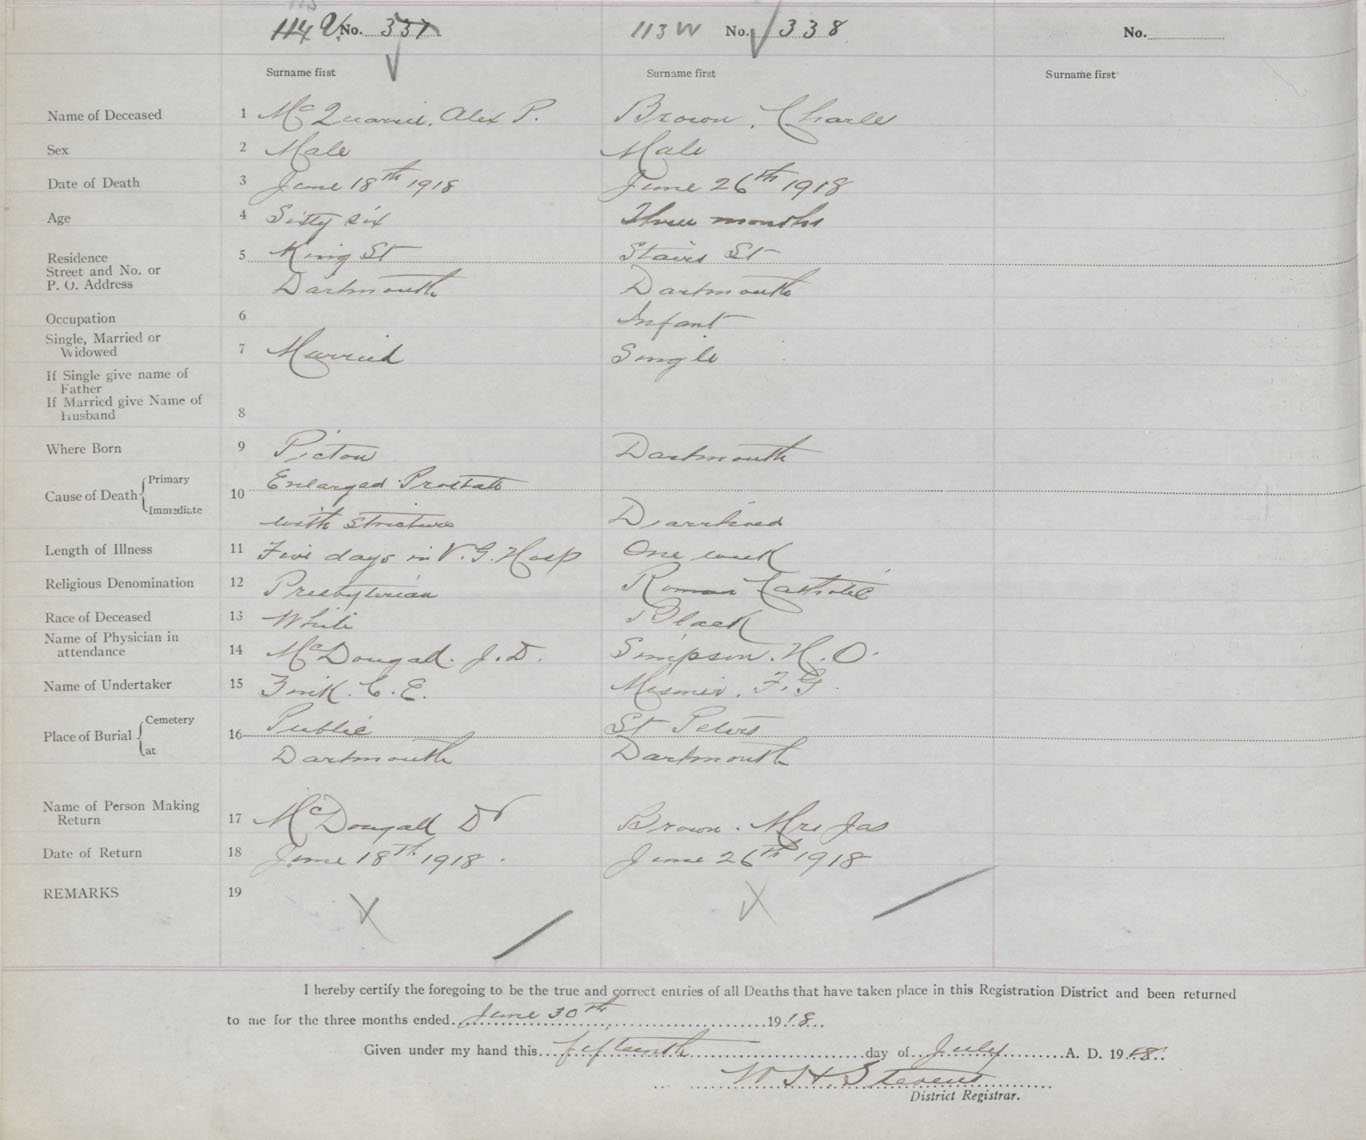 No. 337
113 W No. 338
No.
Surname first Surname first Surname first
Name of Deceased 1 McQuarrie, Alex P. Brown, Charle
Sex 2 Male Male
Date of Death 3 June 18th 1918 June 26th 1918
Age 4 Sixty six Three months
Residence 5 King St Stairs St
Street and No. or
P. O. Address Dartmouth Dartmouth
Occupation 6 Infant
Single, Married or
Widowed 7 Married Single
If Single give name of
Father
If Married give Name of
Husband 8
Where Born 9 Pictou Dartmouth
Cause of Death Primary 10 Enlarged Prostate
Immediate with stricture Diarrhoea
Length of Illness 11 Five days in V. G. Hosp One week
Religious Denomination 12 Presbyterian Roman Catholic
Race of Deceased 13 White Black
Name of Physician in
attendance 14 McDougall. J. D. Simpson. H. O.
Name of Undertaker 15 Zink. C. E. F. G
Place of Burial Cemetery 16 Public St Peters
at Dartmouth Dartmouth
Name of Person Making
Return 17 McDougall Dr Brown. Mrs Jas
Date of Return 18 June 18th 1918. June 26th 1918
REMARKS 19 X X
I hereby certify the foregoing to be the true and correct entries of all Deaths that have taken place in this Registration District and been returned
to me for the three months ended June 30th 1918
Given under my hand this fifteenth day of July A. D. 1918
W H. Stevens
District Registrar.